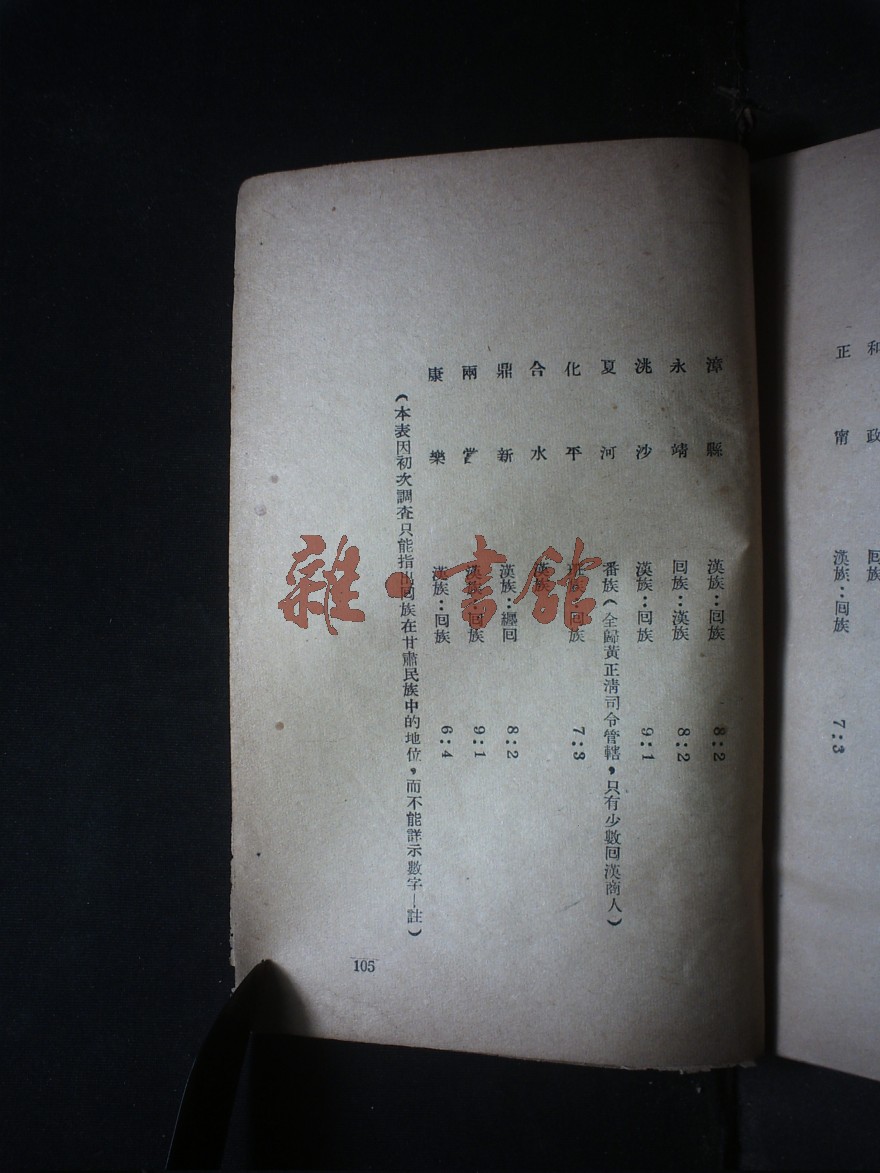 和政 回族
正甯 漢族：回族 7:3
漳縣 漢族：回族 8:2
永靖 回族：漢族 8:2
洮沙 漢族：回族 9:1
夏河 番族（全歸黃正清司令管轄，只有少數回漢商人）
化平 族：回族 7:3
合水 漢族
鼎新 漢族：纏回 8:2
兩當 漢族：回族 9:1
康樂 漢族：回族 6:4
（本表因初次調查只能指出回族在甘肅民族中的地位，而不能詳示數字—註）
105
雜·書館